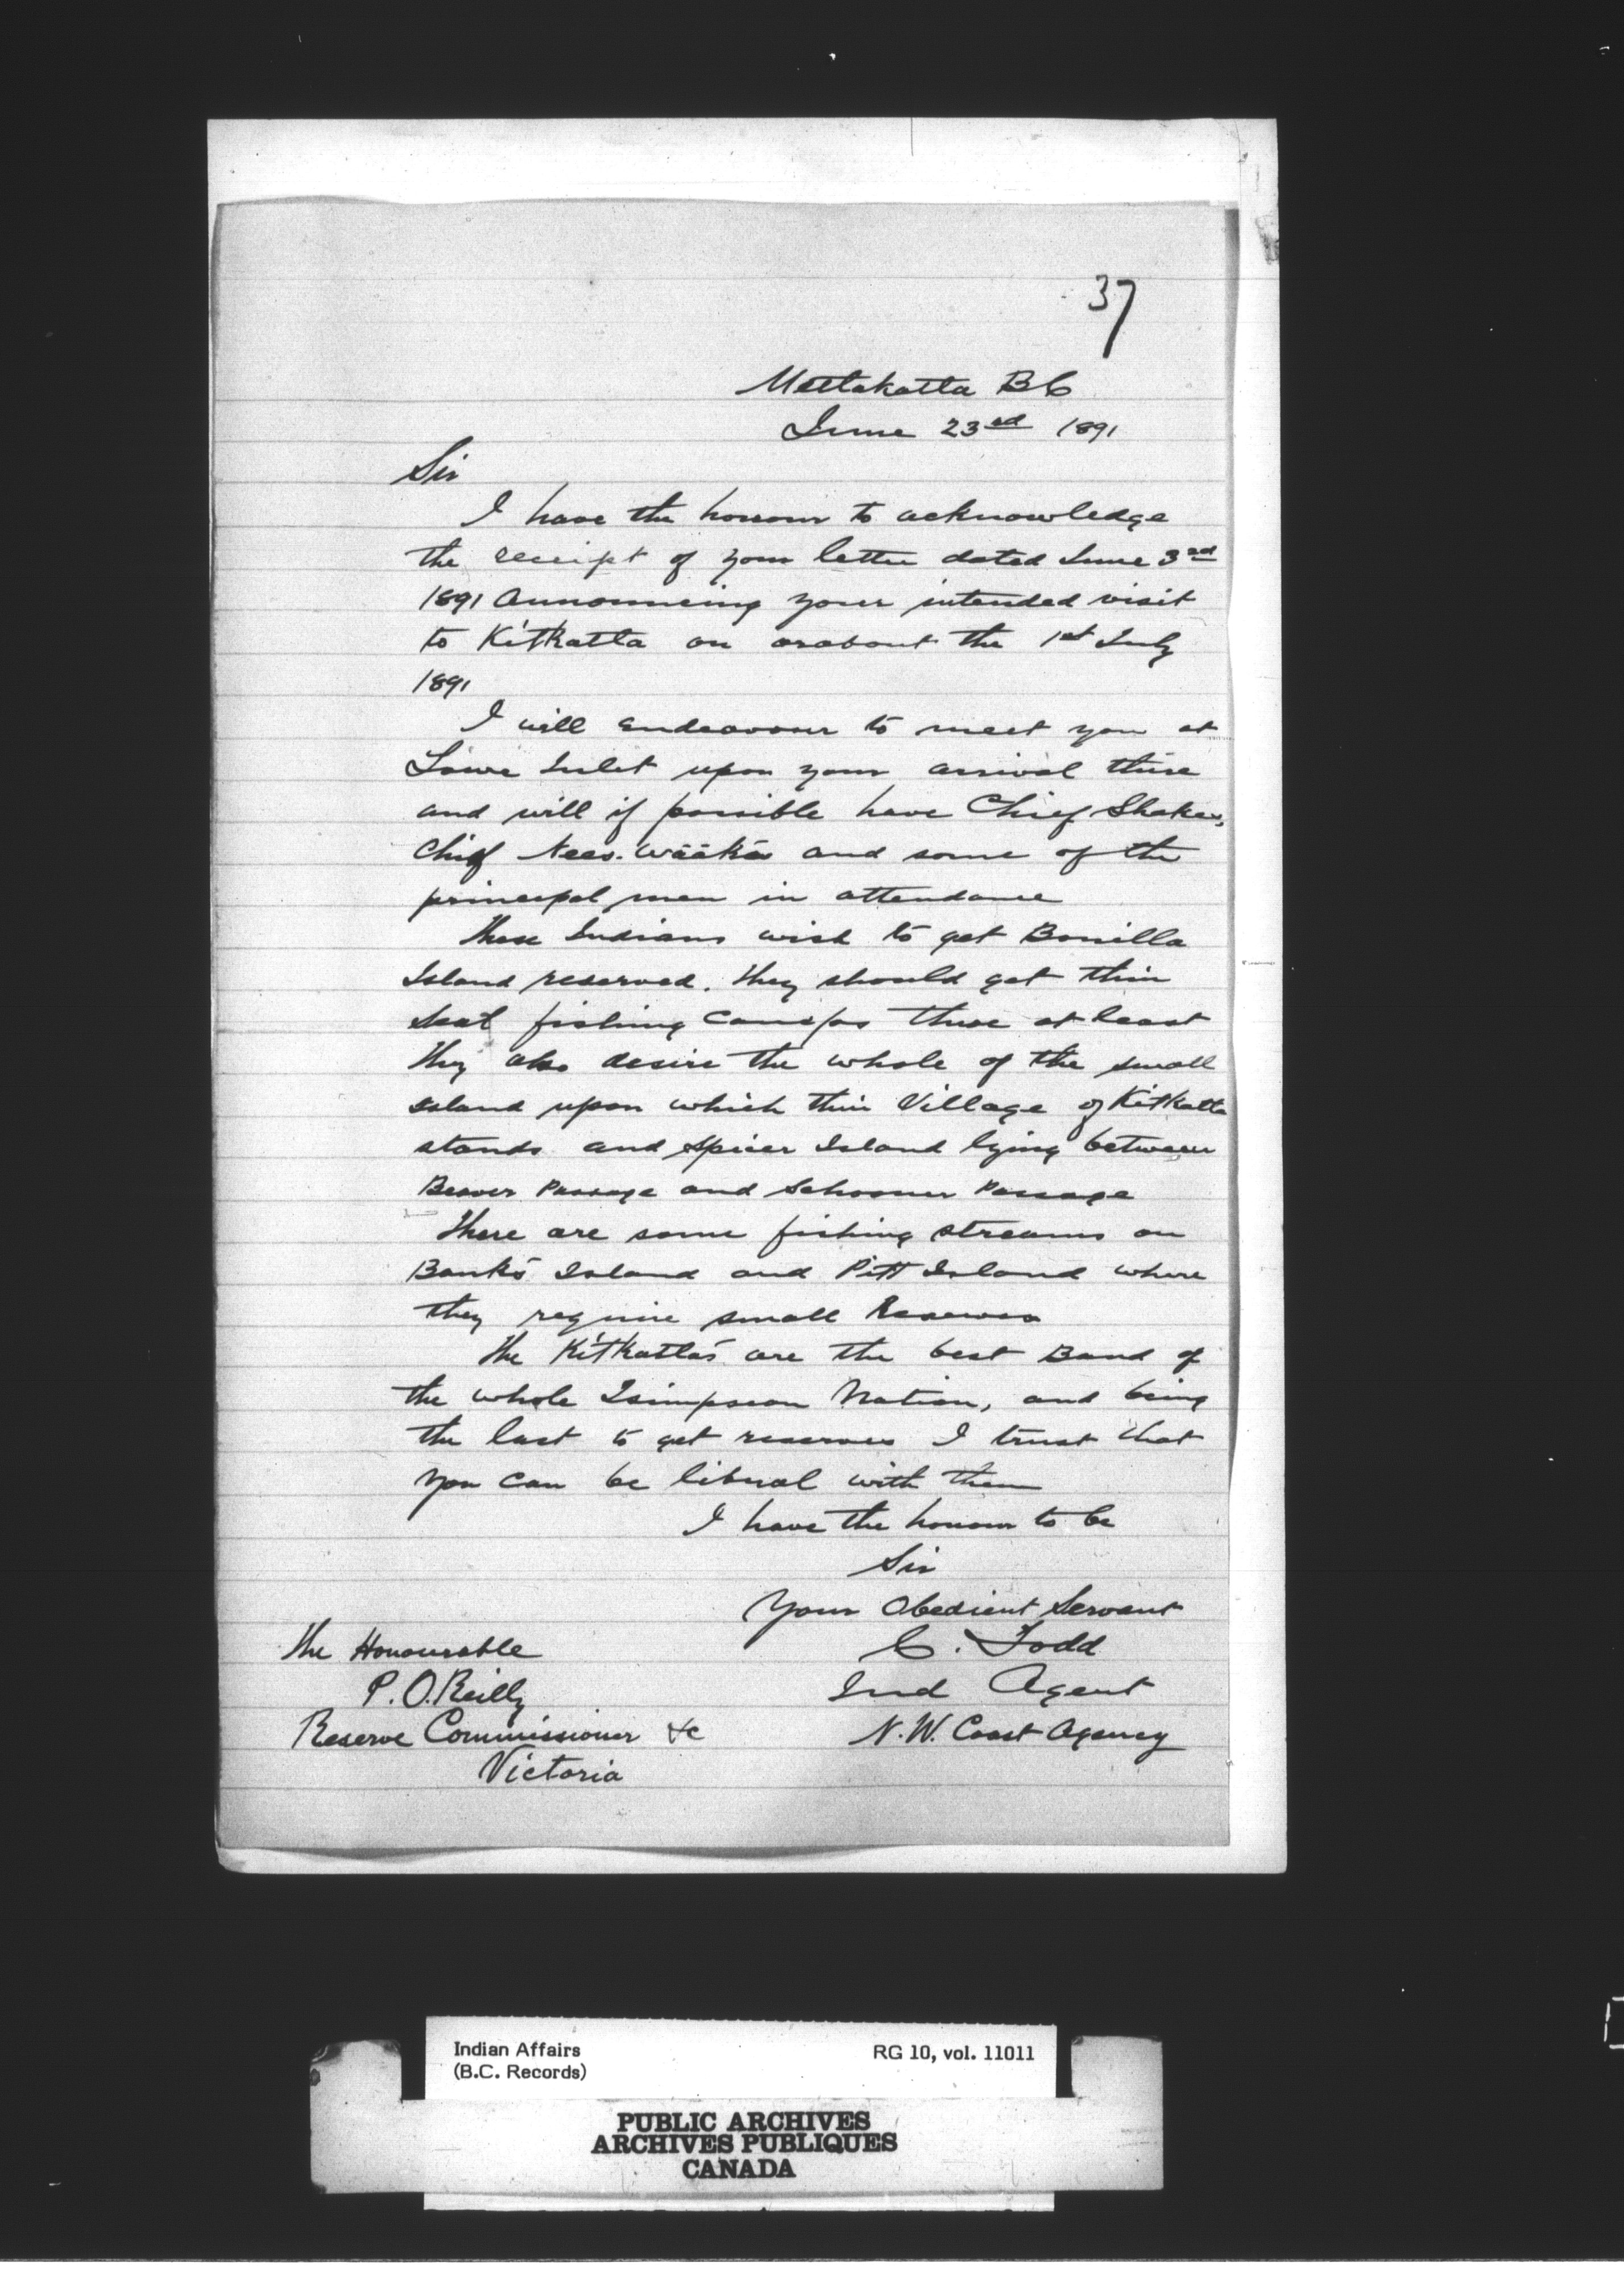 37
Metlakatla BC
June 23rd 1891
Sir
I have the honour to acknowledge
the receipt of your letter dated June 3rd
1891 Announcing your intended visit
to Kitkatla on or about the 1st July
1891
I will endeavour to meet you at
Lowe Inlet upon your arrival there
and will if possible have Chief Shakes,
Chief Nees. wääkä and some of the
principal men in attendance
These Indians wish to get Bonilla
Island reserved. they should get their
Seal fishing camps there at least
They also desire the whole of the small
island upon which their Village of Kitkatla
stands and Spicer Island lying between
Beaver Passage and Schooner Passage
There are some fishing streams on
Bank's Island and Pitt Island where
they require small Reserves
The Kitkatla's are the best Band of
the whole Tsimpsean Nation, and being
the last to get reserves I trust that
you can be liberal with them
I have the honour to be
Sir
Your Obedient Servant
C. Todd
Ind Agent
N.W. Coast Agency
The Honourable
P. O.Reilly
Reserve Commissioner &c
Victoria
Indian Affairs
(B.C. Records)
RG 10, vol. 11011
PUBLIC ARCHIVES
ARCHIVES PUBLIQUES
CANADA